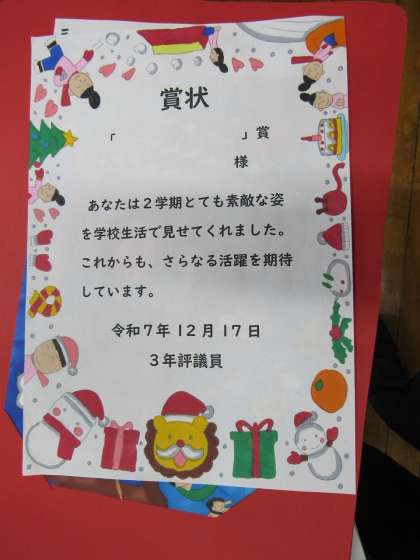 賞状
「　　　　　　　」賞
様
あなたは２学期とても素敵な姿
を学校生活で見せてくれました。
これからも、さらなる活躍を期待
しています。
令和７年１２月１７日
３年評議員